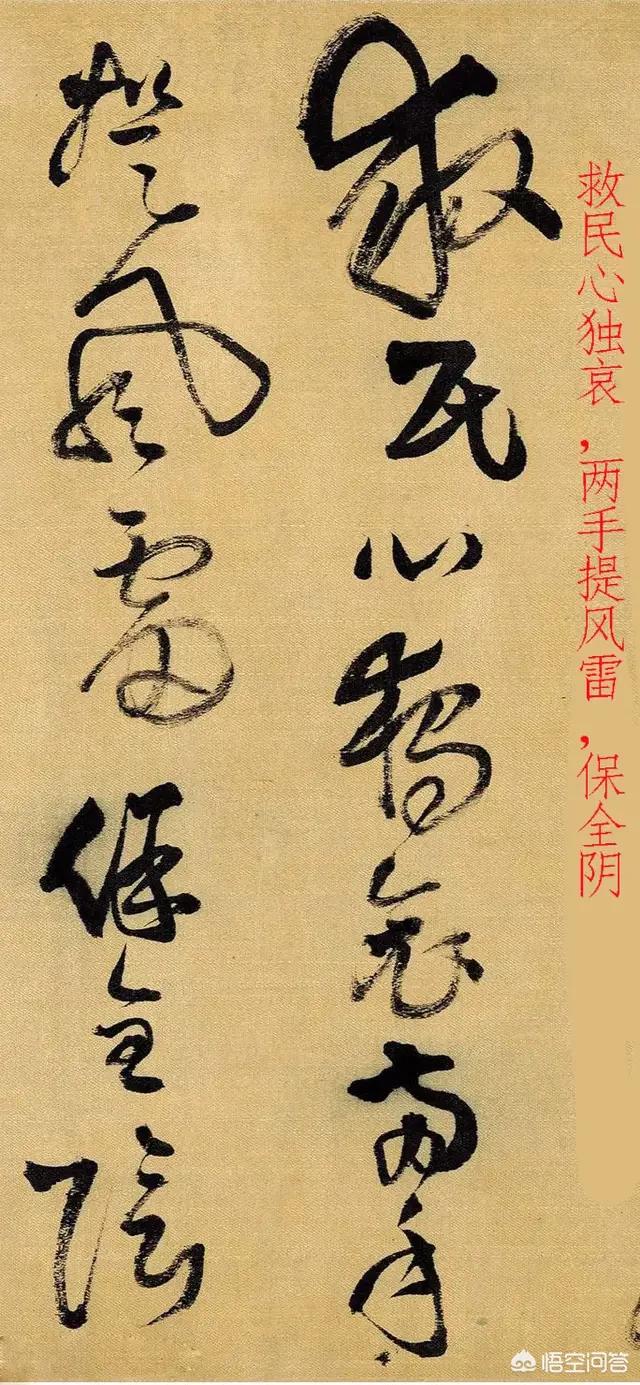 救民心独哀，两手提风雷，保全阴
救民心獨哀兩手
提風雷保全陰
悟空问答